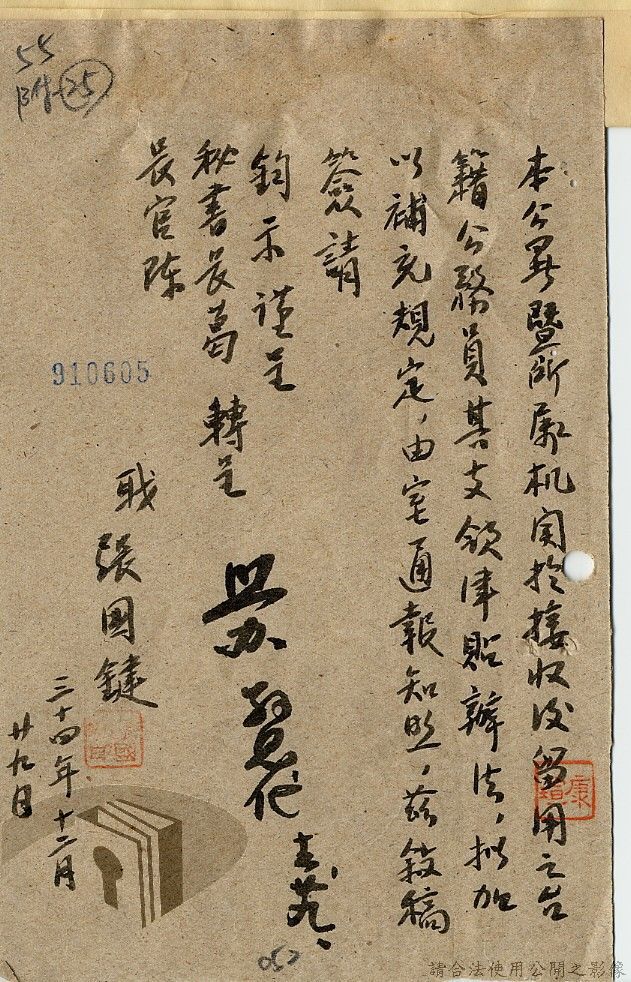 55
附25
本公署暨所屬机関於接收後留用之台
籍公務員其支領津貼辦法，拟加
以補充規定，由室通報知照，茲簽稿
簽請
鈞示 謹呈
秘書長葛 轉呈
長官陳
910605
職張國鍵
三十四年十二月
廿九日
照办
代
052
請合法使用公開之影像